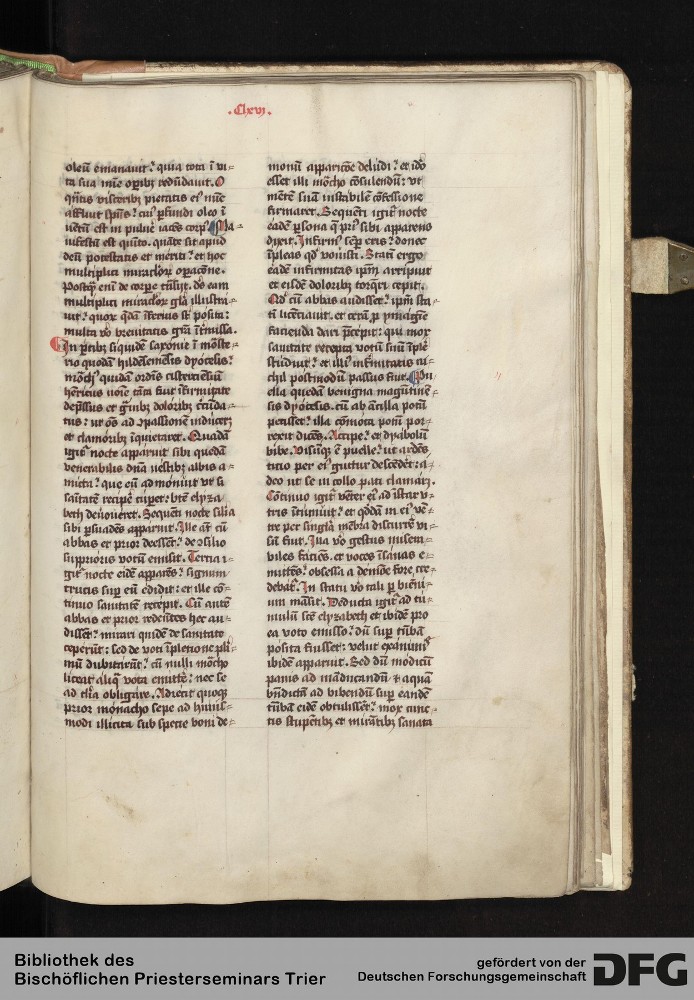 ·Clxvj·
oleū emanauit? quia tota ī vi=
ta sua mīe opibꝫ redūdauit. O
affluit spūs? cuiꝰ ꝑfundi oleo ī
uētum est in puluē iacēs corpꝰ Ma
nifestū est quīto. quāte sit apud
deū potestatis et meriti? et hoc
multiplici miraclorꝭ opacōne.
Postqꝫ eni de corpe trāsijt. dꝰ eam
multiplici miraclorꝭ glā illustra=
uit? quorꝭ qdā īferius sūt posita:
multa vo breuitatis grā ītmissa.
In ptibꝫ siquidē saxonie ī mōste=
rio quodā hildēsemēsis dyocesis?
mōchꝰ quidā ordīs cisterciēsiū
hēricus noīe tāta fuit īfirmitate
dep̄ssus et gͣuibꝫ doloribꝫ
tus: ut oēs ad ꝯpassionē induceret
et clamoribꝫ īquietaret. Quadā
igit̄ nocte apparuit sibi quedā
venerabilis dn̄a uestibꝫ albis a=
micta? que eū ad monuit ut si
sanitatē recipe cuperet: bte elyza
beth deuoueret. Sequēti nocte silīa
sibi ꝑsuadēs apparuit. Ille at̄ cū
abbas et prior deessēt? de ꝯsilio
supprioris votū emisit. Tercia i=
git̄ nocte eidē apparēs? signum
crucis sup eū edidit: et ille cō=
tinuo sanitatē recepit. Cū autē
abbas et prior redeūtes hec au=
dissēt? mirari quidē de sanitate
ceperūt: sed de voti īpletione pli=
mū dubitarūt? cū nulli mōcho
liceat aliqꝭ vota emittē? nec se
ad tl̄ia obligare. Adiecit quoqꝫ
prior monacho sepe ad huius=
modi illicita sub specie boni de=
monū apparicōe deludi? et ido
esset illi mōcho cōsulendū: vt
mētē suā instabilē cōfessione
firmaret. Sequēti igit̄ nocte
eadē ꝑsona q̄ priꝰ sibi apparens
dixit. Infirmꝰ sēp eris? donec
īpleas qd vouisti. Stati ergo
eadē infirmitas ip̄m arripuit
et eisdē doloribꝫ torqri cepit.
Qd cū abbas audisset? ip̄m sta=
ti licēciauit. et cerā p ymagīe
facienda dari p̄cepit: qui mox
sanitate recepta votū suū īple
studuit? et illiꝰ īfirmitatis ni=
chil postmodū passus fuit. Pu=
ella quedā benigna magūtinē=
sis dyocesis. cū ab ācilla potū
petisset? illa cōmota potū por=
rexit dicēs. Accipe? et dyabolū
bibe. Visūqꝫ ē puelle? ut ardēs
titio per eiꝰ guttur descēdet: a=
deo ut se in collo pati clamarꝫ.
Cōtinuo igit̄ vēter eiꝰ ad īstar v=
tris ītumuit? et qddā in eiꝰ vē=
tre per singla mēbra discurrē vi=
sū fuit. Illa vo gestus misera=
biles faciēs. et voces īsanas e=
mittēs? obsessa a demōe fore cre=
debat̄. In statu vo tali p biēni=
um māsit. Deducta igit̄ ad tu=
mulū scē elyzabeth et ibidē pro
ea voto emisso? dū sup tūbā
posita fuisset: velut exanimis
ibidē apparuit. Sed dū modicū
panis ad māducandū ⁊ aquā
bn̄dictā ad bibendū sup eandē
tūbā eidē obtulisset? mox cunc=
tis stupētibꝫ et mirātibꝫ sanata
Bibliothek des
Bischöflichen Priesterseminars Trier
gefördert von der
Deutschen Forschungsgemeinschaft
DFG